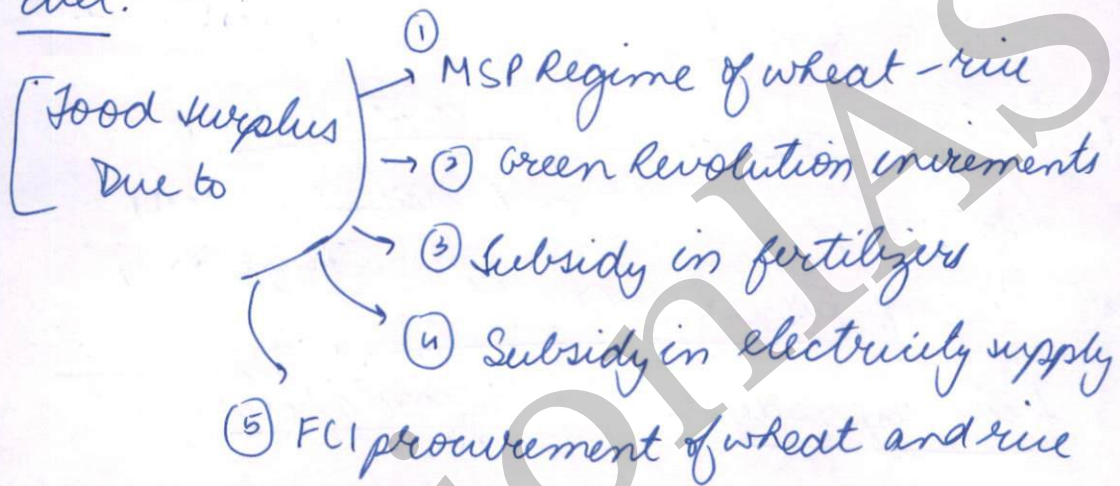 Food surplus
Due to
① MSP Regime of wheat - rice
② Green Revolution increments
③ Subsidy in fertilizers
④ Subsidy in electricity supply
⑤ FCI procurement of wheat and rice
onIAS